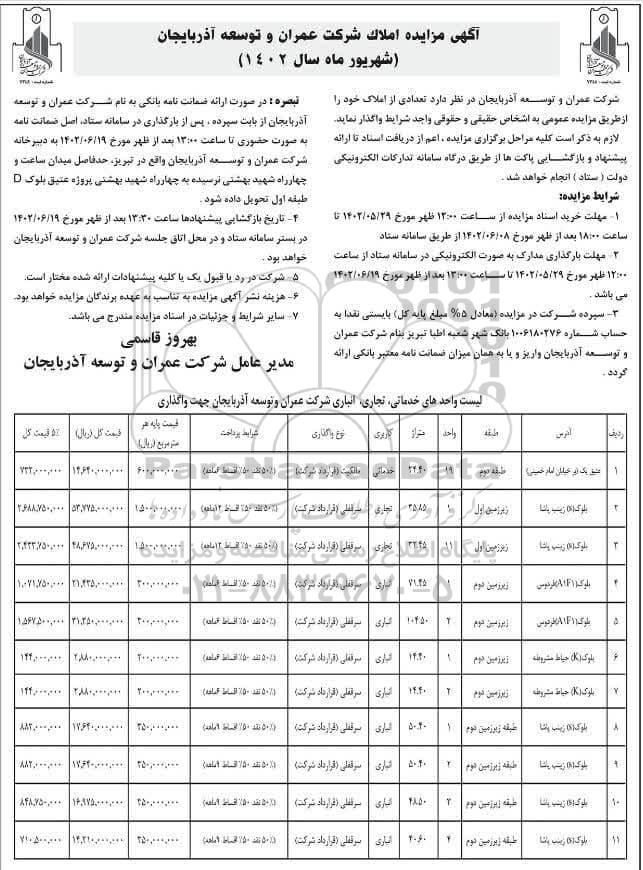 آگهی مزایده املاك شرکت عمران و توسعه آذربایجان
(شهریور ماه سال ۱۴۰۲)
شرکت عمران و توســـعه آذربایجان در نظر دارد تعدادی از املاک خود را
ازطریق مزایده عمومی به اشخاص حقیقی و حقوقی واجد شرایط واگذار نماید.
لازم به ذکر است کلیه مراحل برگزاری مزایده ، اعم از دریافت اسناد تا ارائه
پیشنهاد و بازگشــایی پاکت ها از طریق درگاه سامانه تدارکات الکترونیکی
دولت ( ستاد ) انجام خواهد شد .
شرایط مزایده:
۱- مهلت خرید اسناد مزایده از ســـاعت ۱۲:۰۰ ظهر مورخ ۱۴۰۲/۰۵/۲۹ تا
ساعت ۱۸:۰۰ بعد از ظهر مورخ ۱۴۰۲/۰۶/۰۸ از طریق سامانه ستاد
۲- مهلت بارگذاری مدارک به صورت الکترونیکی در سامانه ستاد از ساعت
۱۲:۰۰ ظهر مورخ ۱۴۰۲/۰۵/۲۹ تا ســـاعت ۱۳:۰۰ بعد از ظهر مورخ ۱۴۰۲/۰۶/۱۹
می باشد .
۳- سپرده شـــرکت در مزایده (معادل ۵% مبلغ پایه کل) بایستی نقدا به
حساب شـــماره ۱۰۰۶۱۸۰۲۷۶ بانک شهر شعبه اطبا تبریز بنام شرکت عمران
و توســـعه آذربایجان واریز و یا به همان میزان ضمانت نامه معتبر بانکی ارائه
گردد .
تبصره : در صورت ارائه ضمانت نامه بانکی به نام شـــرکت عمران و توسعه
آذربایجان از بابت سپرده ، پس از بارگذاری در سامانه ستاد، اصل ضمانت نامه
به صورت حضوری تا ساعت ۱۳:۰۰ بعد از ظهر مورخ ۱۴۰۲/۰۶/۱۹ به دبیرخانه
شرکت عمران و توســـعه آذربایجان واقع در تبریز، حدفاصل میدان ساعت و
چهارراه شهید بهشتی نرسیده به چهارراه شهید بهشتی پروژه عتیق بلوک D
طبقه اول تحویل داده شود .
۴- تاریخ بازگشایی پیشنهادها ساعت ۱۳:۳۰ بعد از ظهر مورخ ۱۴۰۲/۰۶/۱۹
در بستر سامانه ستاد و در محل اتاق جلسه شرکت عمران و توسعه آذربایجان
خواهد بود .
۵- شرکت در رد یا قبول یک یا کلیه پیشنهادات ارائه شده مختار است.
۶- هزینه نشر آگهی مزایده به تناسب به عهده برندگان مزایده خواهد بود.
۷- سایر شرایط و جزئیات در اسناد مزایده مندرج می باشد.
بهروز قاسمی
مدیر عامل شرکت عمران و توسعه آذربایجان
لیست واحد های خدماتی، تجاری، انباری شرکت عمران وتوسعه آذربایجان جهت واگذاری
ردیف آدرس طبقه واحد متراژ کاربری نوع واگذاری شرایط پرداخت قیمت پایه هر مترمربع (ریال) قیمت کل (ریال) ۵% قیمت کل
۱ عتیق یک (بر خیابان امام خمینی) طبقه دوم ۱۹ ۲۴.۴۰ خدماتی مالکیت (قرارداد شرکت) (۵۰% نقد ۵۰% اقساط ۶ماهه) ۶۰۰,۰۰۰,۰۰۰ ۱۴,۶۴۰,۰۰۰,۰۰۰ ۷۳۲,۰۰۰,۰۰۰
۲ بلوک(s) زینب پاشا زیرزمین اول ۱ ۳۵.۸۵ تجاری سرقفلی (قرارداد شرکت) (۵۰% نقد ۵۰% اقساط ۱۲ماهه) ۱,۵۰۰,۰۰۰,۰۰۰ ۵۳,۷۷۵,۰۰۰,۰۰۰ ۲,۶۸۸,۷۵۰,۰۰۰
۳ بلوک(s) زینب پاشا زیرزمین اول ۱۱ ۳۲.۴۵ تجاری سرقفلی (قرارداد شرکت) (۵۰% نقد ۵۰% اقساط ۱۲ماهه) ۱,۵۰۰,۰۰۰,۰۰۰ ۴۸,۶۷۵,۰۰۰,۰۰۰ ۲,۴۳۳,۷۵۰,۰۰۰
۴ بلوک(A۱F۱)فردوس زیرزمین دوم ۱ ۷۱.۴۵ انباری سرقفلی (قرارداد شرکت) (۵۰% نقد ۵۰% اقساط ۶ماهه) ۳۰۰,۰۰۰,۰۰۰ ۲۱,۴۳۵,۰۰۰,۰۰۰ ۱,۰۷۱,۷۵۰,۰۰۰
۵ بلوک(A۱F۱)فردوس زیرزمین دوم ۲ ۱۰۴.۵۰ انباری سرقفلی (قرارداد شرکت) (۵۰% نقد ۵۰% اقساط ۶ماهه) ۳۰۰,۰۰۰,۰۰۰ ۳۱,۳۵۰,۰۰۰,۰۰۰ ۱,۵۶۷,۵۰۰,۰۰۰
۶ بلوک(K) حیاط مشروطه زیرزمین دوم ۱ ۱۴.۴۰ انباری سرقفلی (قرارداد شرکت) (۵۰% نقد ۵۰% اقساط ۶ماهه) ۲۰۰,۰۰۰,۰۰۰ ۲,۸۸۰,۰۰۰,۰۰۰ ۱۴۴,۰۰۰,۰۰۰
۷ بلوک(K) حیاط مشروطه زیرزمین دوم ۲ ۱۴.۴۰ انباری سرقفلی (قرارداد شرکت) (۵۰% نقد ۵۰% اقساط ۶ماهه) ۲۰۰,۰۰۰,۰۰۰ ۲,۸۸۰,۰۰۰,۰۰۰ ۱۴۴,۰۰۰,۰۰۰
۸ بلوک(s) زینب پاشا طبقه زیرزمین دوم ۱ ۵۰.۴۰ انباری سرقفلی (قرارداد شرکت) (۵۰% نقد ۵۰% اقساط ۹ماهه) ۳۵۰,۰۰۰,۰۰۰ ۱۷,۶۴۰,۰۰۰,۰۰۰ ۸۸۲,۰۰۰,۰۰۰
۹ بلوک(s) زینب پاشا طبقه زیرزمین دوم ۲ ۵۰.۴۰ انباری سرقفلی (قرارداد شرکت) (۵۰% نقد ۵۰% اقساط ۹ماهه) ۳۵۰,۰۰۰,۰۰۰ ۱۷,۶۴۰,۰۰۰,۰۰۰ ۸۸۲,۰۰۰,۰۰۰
۱۰ بلوک(s) زینب پاشا طبقه زیرزمین دوم ۳ ۴۸.۵۰ انباری سرقفلی (قرارداد شرکت) (۵۰% نقد ۵۰% اقساط ۹ماهه) ۳۵۰,۰۰۰,۰۰۰ ۱۶,۹۷۵,۰۰۰,۰۰۰ ۸۴۸,۷۵۰,۰۰۰
۱۱ بلوک(s) زینب پاشا طبقه زیرزمین دوم ۴ ۴۰.۶۰ انباری سرقفلی (قرارداد شرکت) (۵۰% نقد ۵۰% اقساط ۹ماهه) ۳۵۰,۰۰۰,۰۰۰ ۱۴,۲۱۰,۰۰۰,۰۰۰ ۷۱۰,۵۰۰,۰۰۰
ParsNamadData
پایگاه اطلاع رسانی مناقصه و مزایده
۰۲۱-۸۸۳۴۹۶۷۰-۵